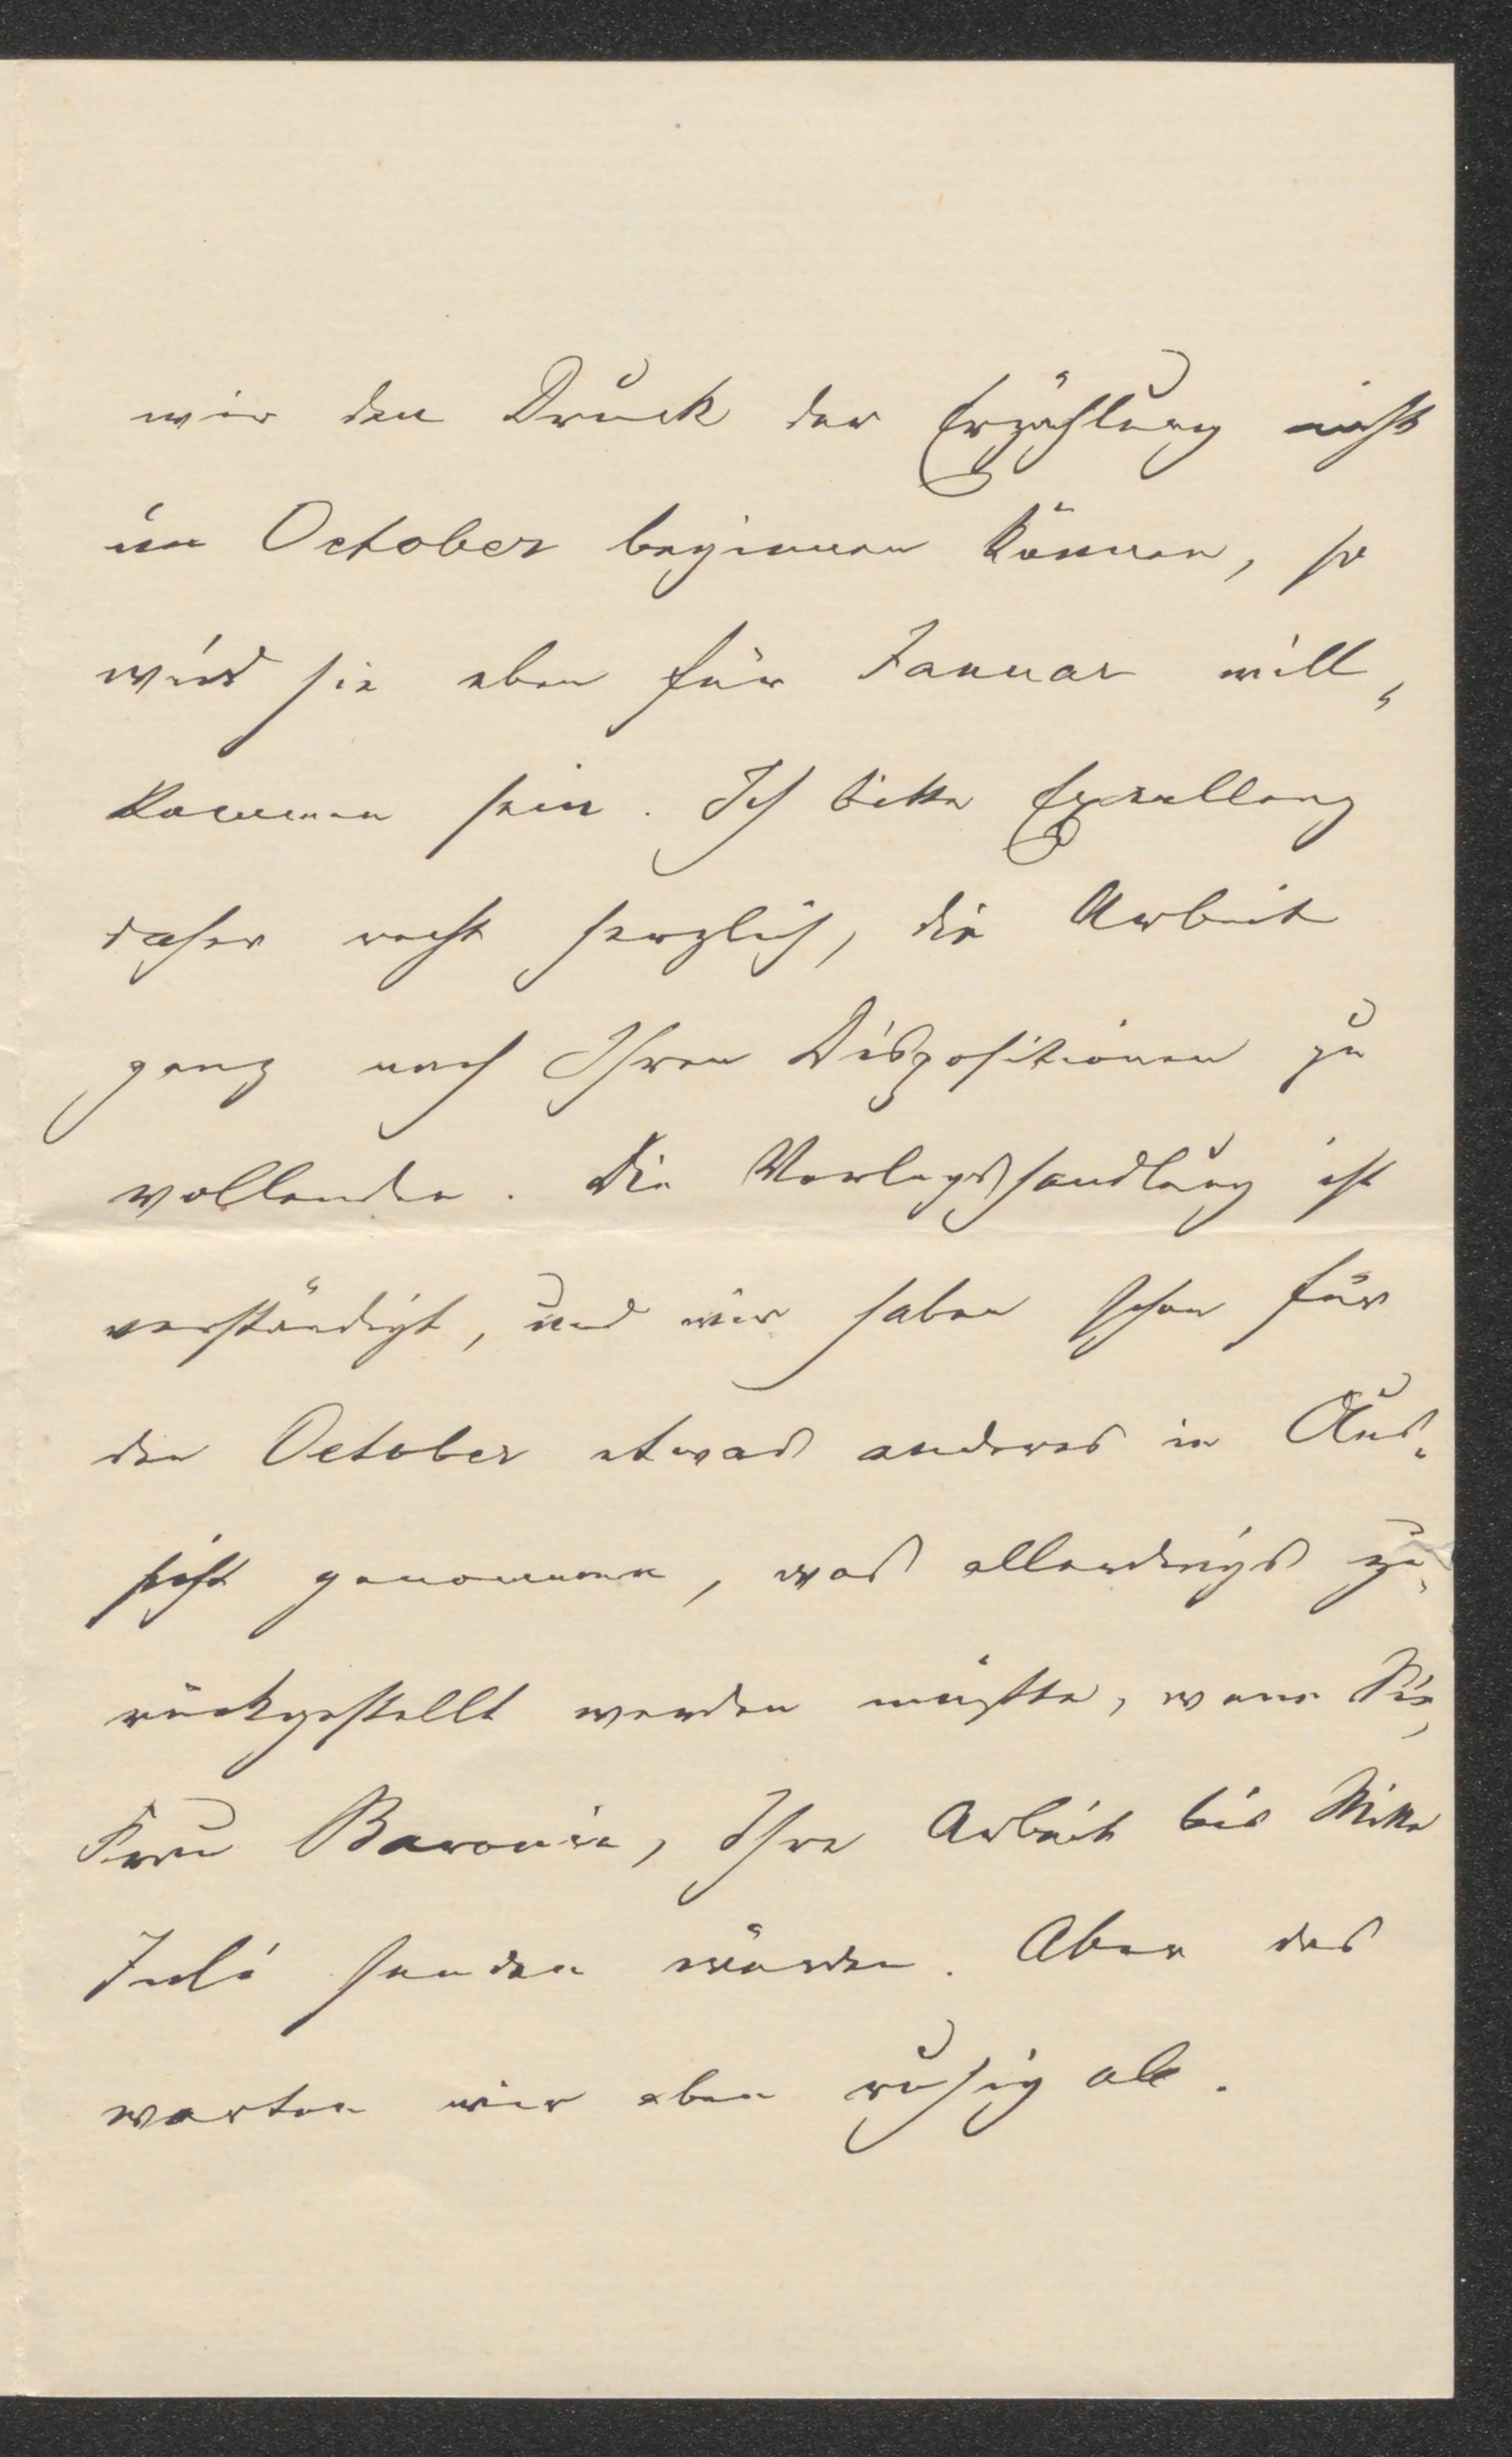 wir den Druck der Erzählung nicht
im October beginnen können, so
wird sie eben für Januar will-
kommen sein. Ich bitte Excellenz
daher recht herzlich, die Arbeit
ganz nach Ihren Dispositionen zu
vollenden. Die Verlagshandlung ist
verständigt, und wir haben schon für
den October etwas anderes in Aus-
sicht genommen, was allerdings zu-
rückgestellt werden müßte, wenn Sie,
Frau Baronin, Ihre Arbeit bis Mitte
Juli senden würden. Aber das
warten wir eben ruhig ab.